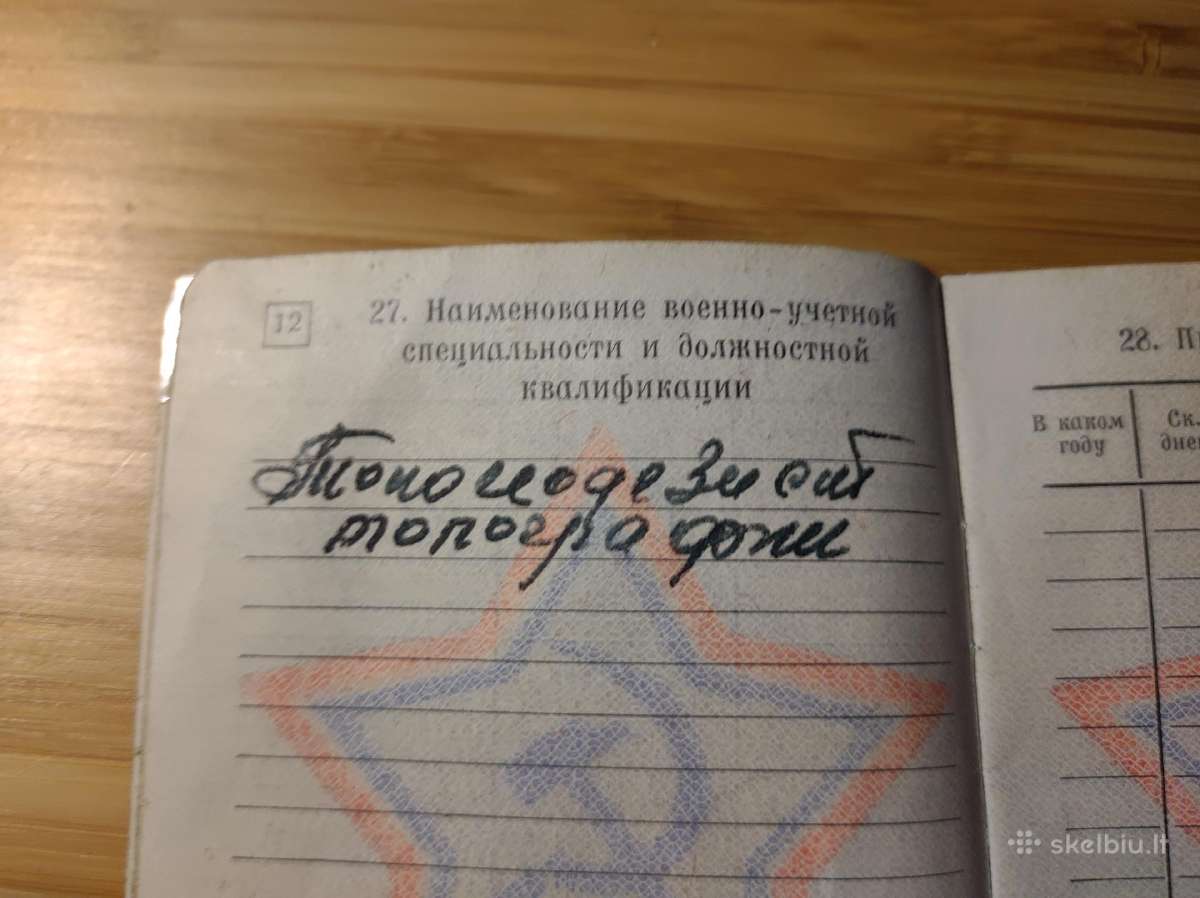 12
27. Наименование военно-учетной
специальности и должностной
квалификации
Топогеодезист
топографии
28.
В каком
году
skelbiu.lt